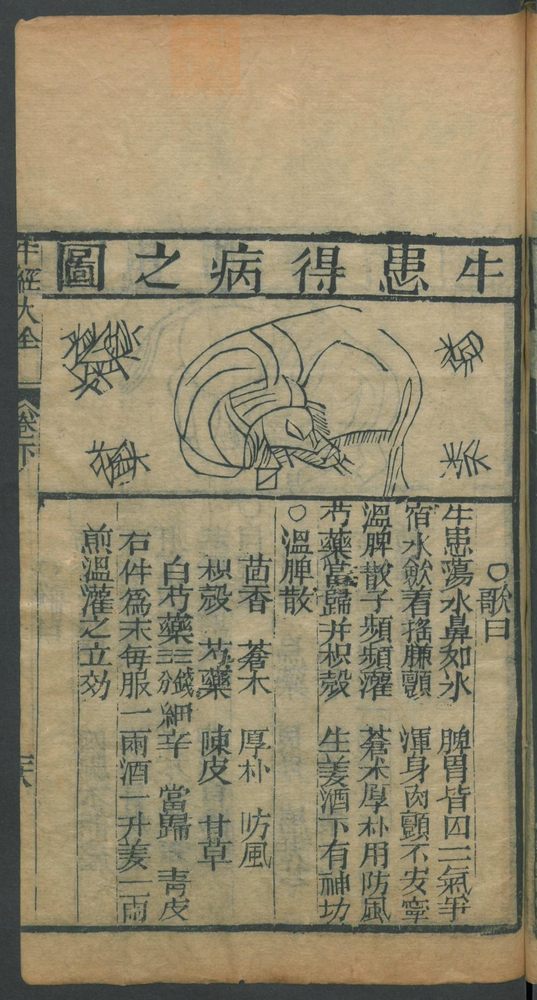 牛患得病之圖
○歌曰
牛患蕩水鼻如氷　脾胃皆因二氣爭
宿水飲着搖膁顫　渾身肉顫不安寧
溫脾散子頻頻灌　蒼术厚朴用防風
芍藥當歸并枳殼　生姜酒下有神功
○溫脾散
茴香　蒼木　厚朴　防風
枳殼　芍藥　陳皮　甘草
白芍藥三錢三分　細辛　當歸　青皮
右件爲末每服一兩酒一升姜一兩
煎溫灌之立効
牛經大全
卷下